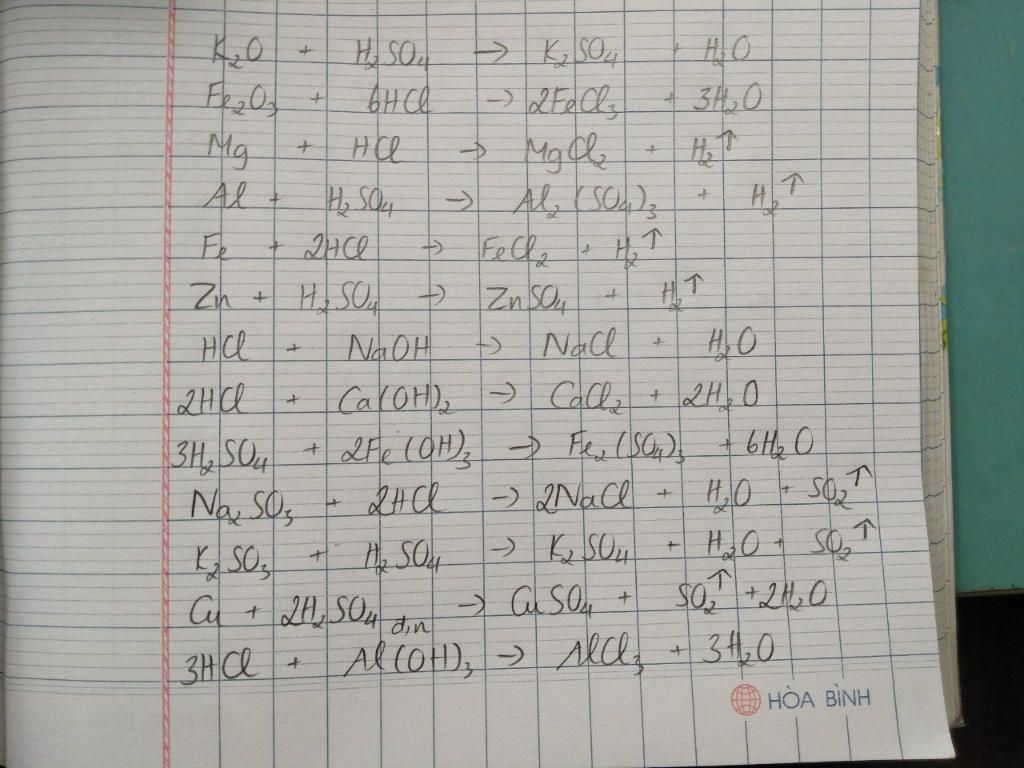 K₂O + H₂SO₄ → K₂SO₄ + H₂O
Fe₂O₃ + 6HCl → 2FeCl₃ + 3H₂O
Mg + HCl → MgCl₂ + H₂↑
Al + H₂SO₄ → Al₂(SO₄)₃ + H₂↑
Fe + 2HCl → FeCl₂ + H₂↑
Zn + H₂SO₄ → ZnSO₄ + H₂↑
HCl + NaOH → NaCl + H₂O
2HCl + Ca(OH)₂ → CaCl₂ + 2H₂O
3H₂SO₄ + 2Fe(OH)₃ → Fe₂(SO₄)₃ + 6H₂O
Na₂SO₃ + 2HCl → 2NaCl + H₂O + SO₂↑
K₂SO₃ + H₂SO₄ → K₂SO₄ + H₂O + SO₂↑
Cu + 2H₂SO₄ đ,n → CuSO₄ + SO₂↑ + 2H₂O
3HCl + Al(OH)₃ → AlCl₃ + 3H₂O
HÒA BÌNH